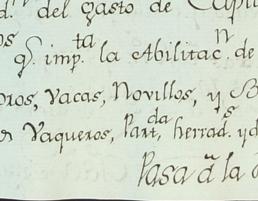 d. del gasto de Capit
os
q.e imp.ta la Abilitac.n de
oros, Vacas, Novillos, y B
en Vaqueros, Part.da, herrad.s y d
Pasa â la